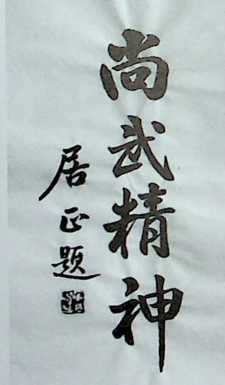 尚武精神
居正题